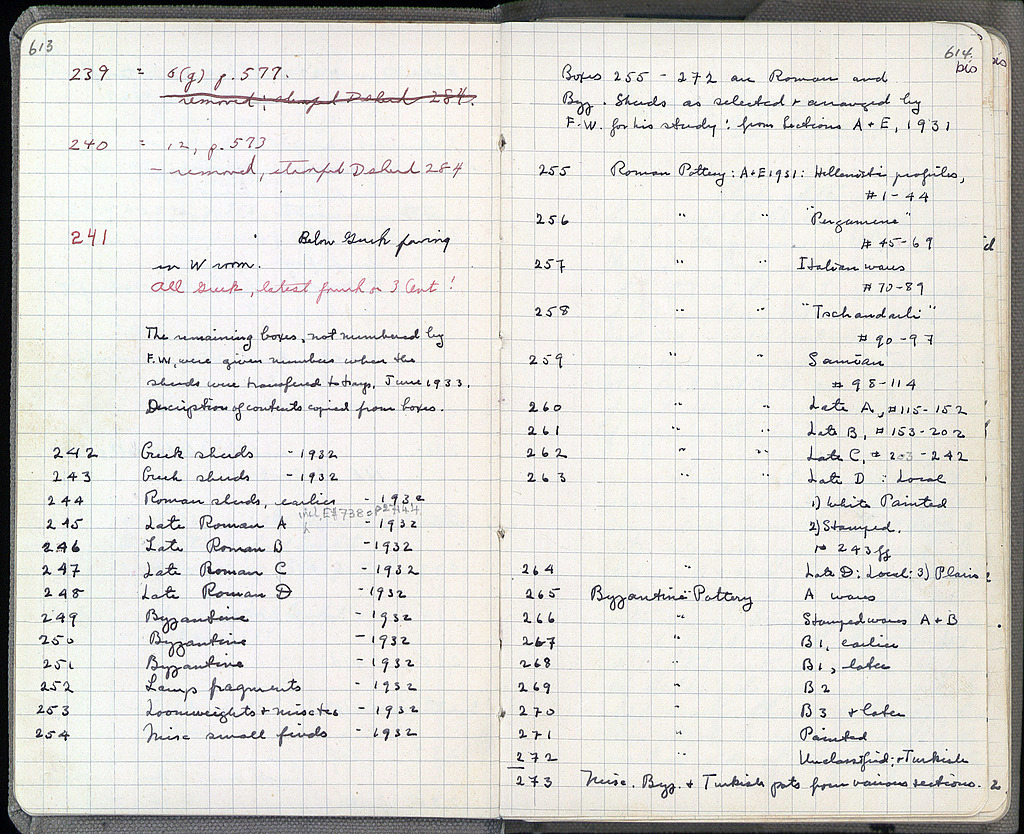 613
239 = 6(g) p. 577.
removed; stamped D sherd 284.
240 = 12, p. 573
- removed, stamped D sherd 284
241 Below Greek paving
in W room.
All Greek, latest fourth or 3 Cent!
The remaining boxes, not numbered by
F.W, were given numbers when the
sherds were transfered to trays, June 1933.
Description of contents copied from boxes.
242 Greek sherds - 1932
243 Greek sherds - 1932
244 Roman sherds, earlier - 1932
incl. E#738
245 Late Roman A - 1932
246 Late Roman B - 1932
247 Late Roman C - 1932
248 Late Roman D - 1932
249 Byzantine - 1932
250 Byzantine - 1932
251 Byzantine - 1932
252 Lamp fragments - 1932
253 Loomweights + - 1932
254 Misc small finds - 1932
614
bis
Boxes 255 - 272 are Roman and
Byz. Sherds as selected + arranged by
F.W. for his study: from Sections A + E, 1931
255 Roman Pottery: A+E 1931: Hellenistic profiles,
# 1 - 44
256 " " "Pergamene"
# 45-69
257 " " Italian wares
# 70-89
258 " " "Tschandarli"
# 90-97
259 " " Samian
# 98-114
260 " " Late A, #115-152
261 " " Late B, # 153-202
262 " " Late C, # 203-242
263 " " Late D : Local
1) White Painted
2) Stamped.
243 ff
264 " Late D: Local: 3) Plain
265 Byzantine Pottery A wares
266 " Stamped wares A + B
267 " B1, earlier
268 " B1, later
269 " B2
270 " B3 + later
271 " Painted
272 " Unclassified; + Turkish
273 Misc. Byz. + Turkish pots from various sections.